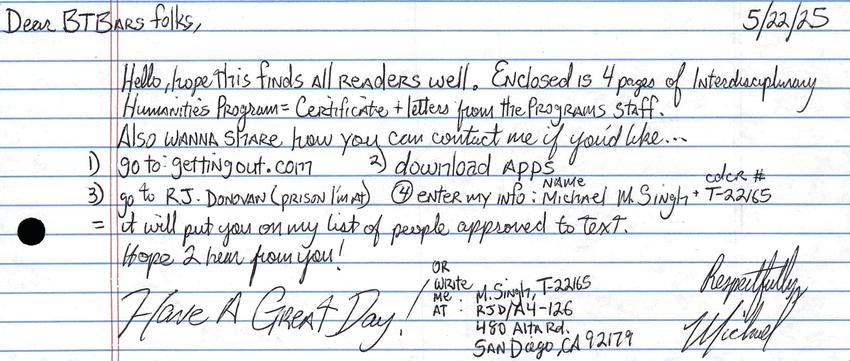 Dear BTBARS folks,
5/22/25
Hello, hope this finds All Readers well. Enclosed is 4 pages of Interdisciplinary
Humanities Program = Certificate + letters from the Programs Staff.
Also wanna share how you can contact me if you'd like...
1) go to: gettingout.com 2) download APPS
3) go to RJ. Donovan (prison I'm at) 4) enter my info: NAME Michael M. Singh + CDCR # T-22165
= it will put you on my list of people approved to text.
Hope 2 hear from you!
Have A Great Day!
OR
Write
Me
AT: M. Singh, T-22165
RJD/A4-126
480 Alta Rd.
San Diego, CA 92179
Respectfully,
Michael